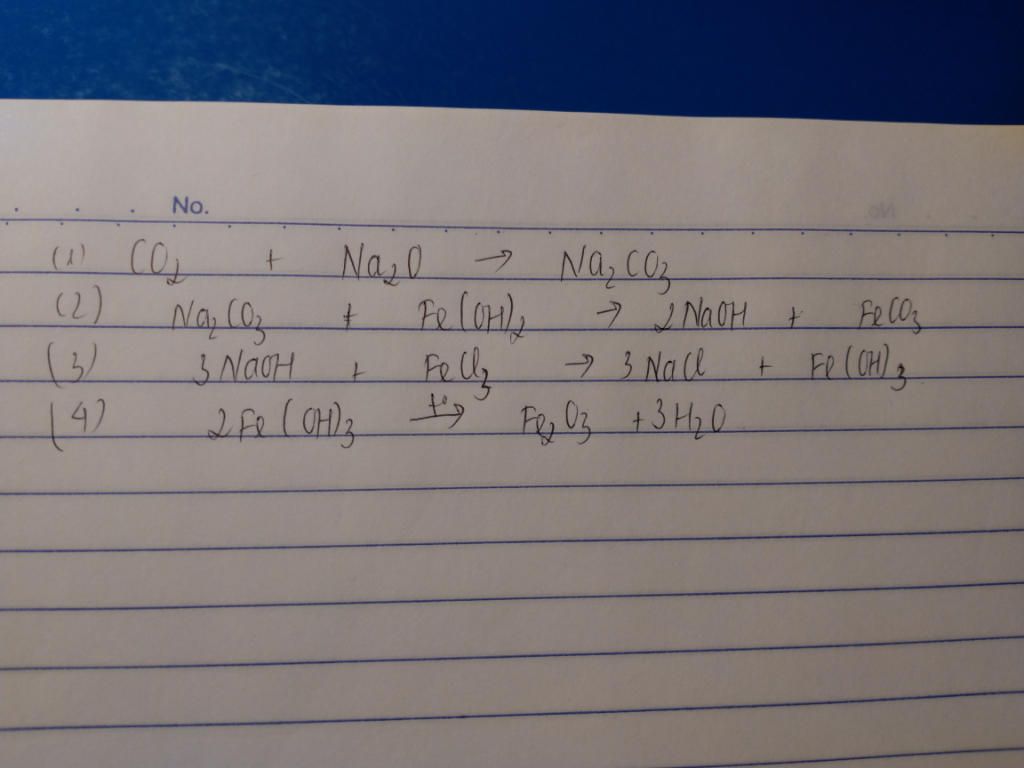 No.
(1) CO₂ + Na₂O → Na₂CO₃
(2) Na₂CO₃ + Fe(OH)₂ → 2NaOH + FeCO₃
(3) 3NaOH + FeCl₃ → 3NaCl + Fe(OH)₃
(4) 2Fe(OH)₃ —t°→ Fe₂O₃ + 3H₂O